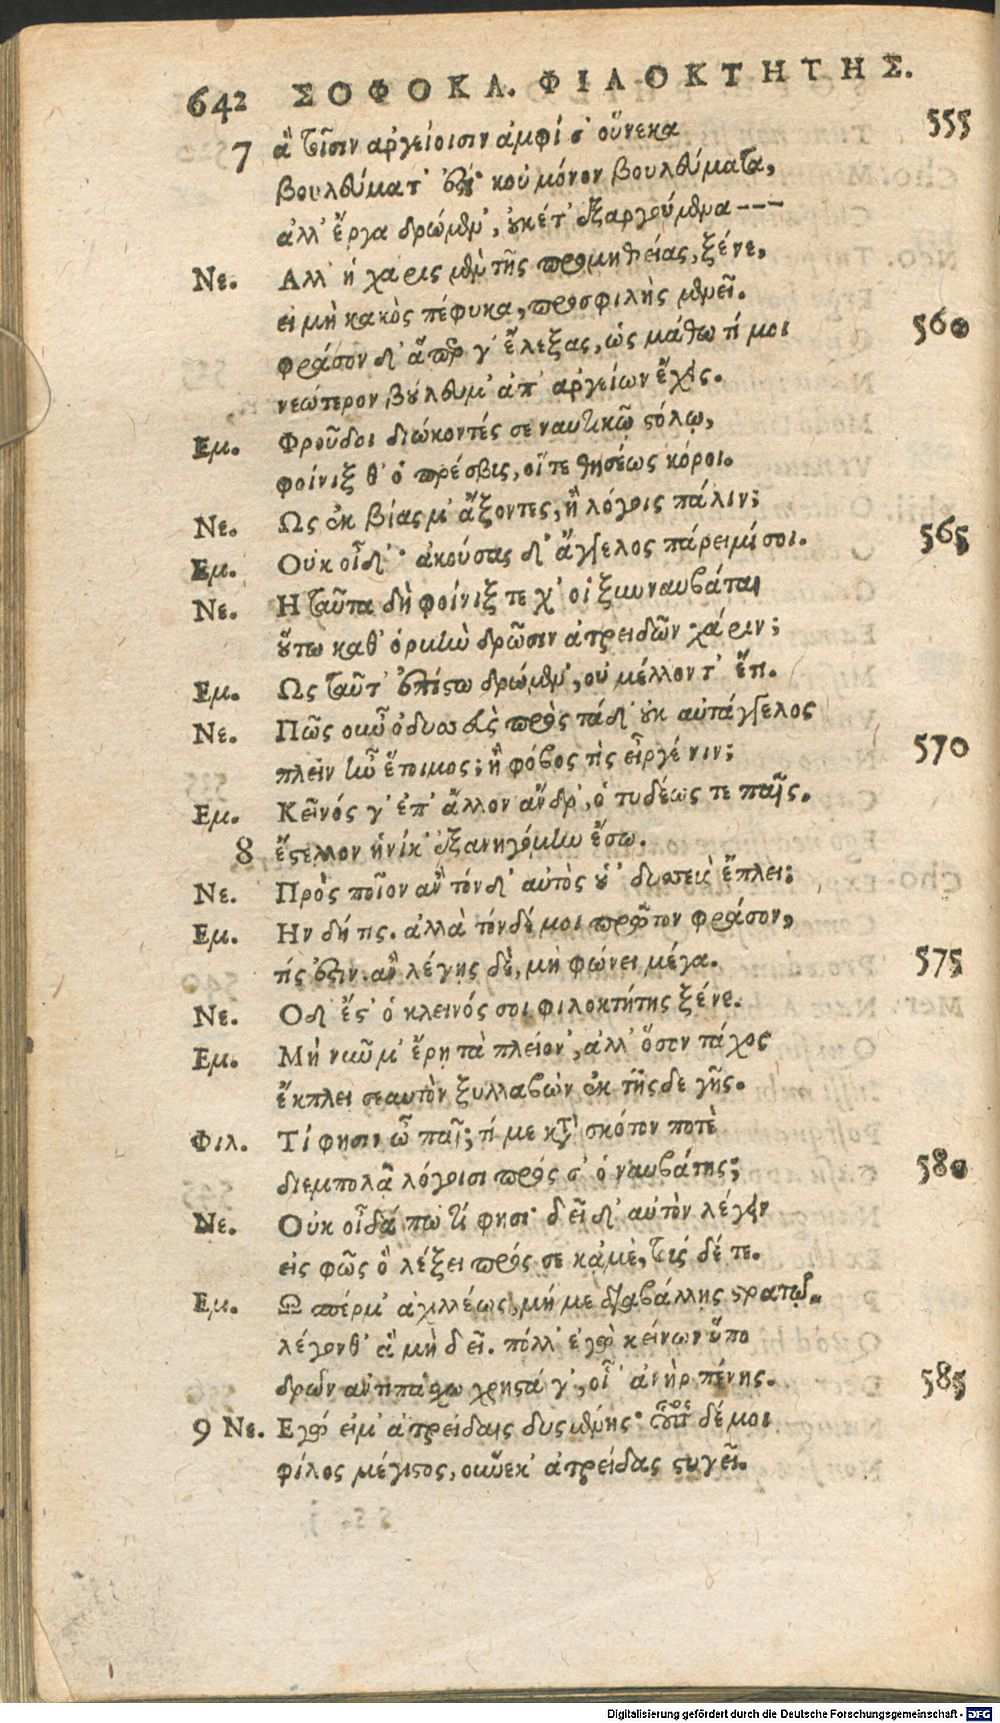 642 ΣΟΦΟΚΛ. ΦΙΛΟΚΤΗΤΗΣ.
7 ἃ τοῖσιν ἀργείοισιν ἀμφί σ' οὕνεκα 555
βουλεύματ' ἐστὶ· κοὐ μόνον βουλεύματα,
ἀλλ' ἔργα δρώμεν', οὐκέτ' ἐξαργούμενα ---
Νε. Αλλ' ἡ χάρις μὲν τῆς προμηθείας, ξένε,
εἰ μὴ κακὸς πέφυκα, προσφιλὴς μενεῖ.
φράσον δ' ἅπερ γ' ἔλεξας, ὡς μάθω τί μοι 560
νεώτερον βούλευμ' ἀπ' ἀργείων ἔχεις.
Εμ. Φροῦδοι διώκοντές σε ναυτικῷ στόλῳ,
φοίνιξ θ' ὁ πρέσβις, οἵ τε θησέως κόροι.
Νε. Ως ἐκ βίας μ' ἄξοντες, ἢ λόγοις πάλιν;
Εμ. Οὐκ οἶδ'· ἀκούσας δ' ἄγγελος πάρειμί σοι. 565
Νε. Η ταῦτα δὴ φοίνιξ τε χ' οἱ ξυνναυβάται
οὕτω καθ' ὁρμὴν δρῶσιν ἀτρειδῶν χάριν;
Εμ. Ως ταῦτ' ἐπίστω δρώμεν', οὐ μέλλοντ' ἔπ.
Νε. Πῶς οὖν ὀδυσσεὺς πρὸς τάδ' οὐκ αὐτάγγελος
πλεῖν ἦν ἕτοιμος; ἢ φόβος τὶς εἶργέ νιν; 570
Εμ. Κεῖνός γ' ἐπ' ἄλλον ἄνδρ', ὁ τυδέως τε παῖς.
8 ἔστελλον ἡνίκ' ἐξανηγόμην ἔσω.
Νε. Πρὸς ποῖον ἂν τόνδ' αὐτὸς οὑ' δυσσεὺς ἔπλει;
Εμ. Ην δή τις. ἀλλὰ τόνδέ μοι πρῶτον φράσον,
τίς ἐστιν. ἂν λέγῃς δὲ, μὴ φώνει μέγα. 575
Νε. Οδ' ἔσθ' ὁ κλεινός σοι φιλοκτήτης ξένε.
Εμ. Μή νυῦ μ' ἔρῃ τὰ πλείον', ἀλλ' ὅσον τάχος
ἔκπλει σεαυτὸν ξυλλαβὼν ἐκ τῆσδε γῆς.
Φιλ. Τί φησιν ὦ παῖ; τί με κατὰ σκότον ποτὲ
διεμπολᾷ λόγοισι πρός σ' ὁ ναυβάτης; 580
Νε. Οὐκ οἶδά πω τί φησι· δεῖ δ' αὐτὸν λέγειν
εἰς φῶς ὃ λέξει πρός σε κἀμὲ, τοῖς δέ τε.
Εμ. Ω σπέρμ' ἀχιλλέως, μή με διαβάλλῃς στρατῷ,
λέγονθ' ἃ μὴ δεῖ. πόλλ' ἐγὼ κείνων ὕπο
δρῶν ἀντιπάσχω χρηστά γ', οἷ' ἀνὴρ πένης. 585
9 Νε. Εγώ εἰμ' ἀτρείδαις δυσμενής· οὗτος δέ μοι
φίλος μέγιστος, οὕνεκ' ἀτρείδας στυγεῖ.
Digitalisierung gefördert durch die Deutsche Forschungsgemeinschaft - DFG